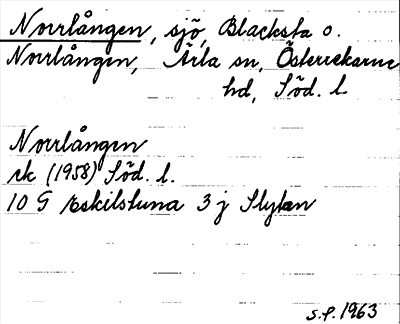 Norrlången, sjö, Blacksta o.
Norrlången, Ärla sn, Österrekarne
hd, Söd. l.
Norrlången
rk (1958) Söd. l.
10 G Eskilstuna 3 j Slytan
s.f. 1963